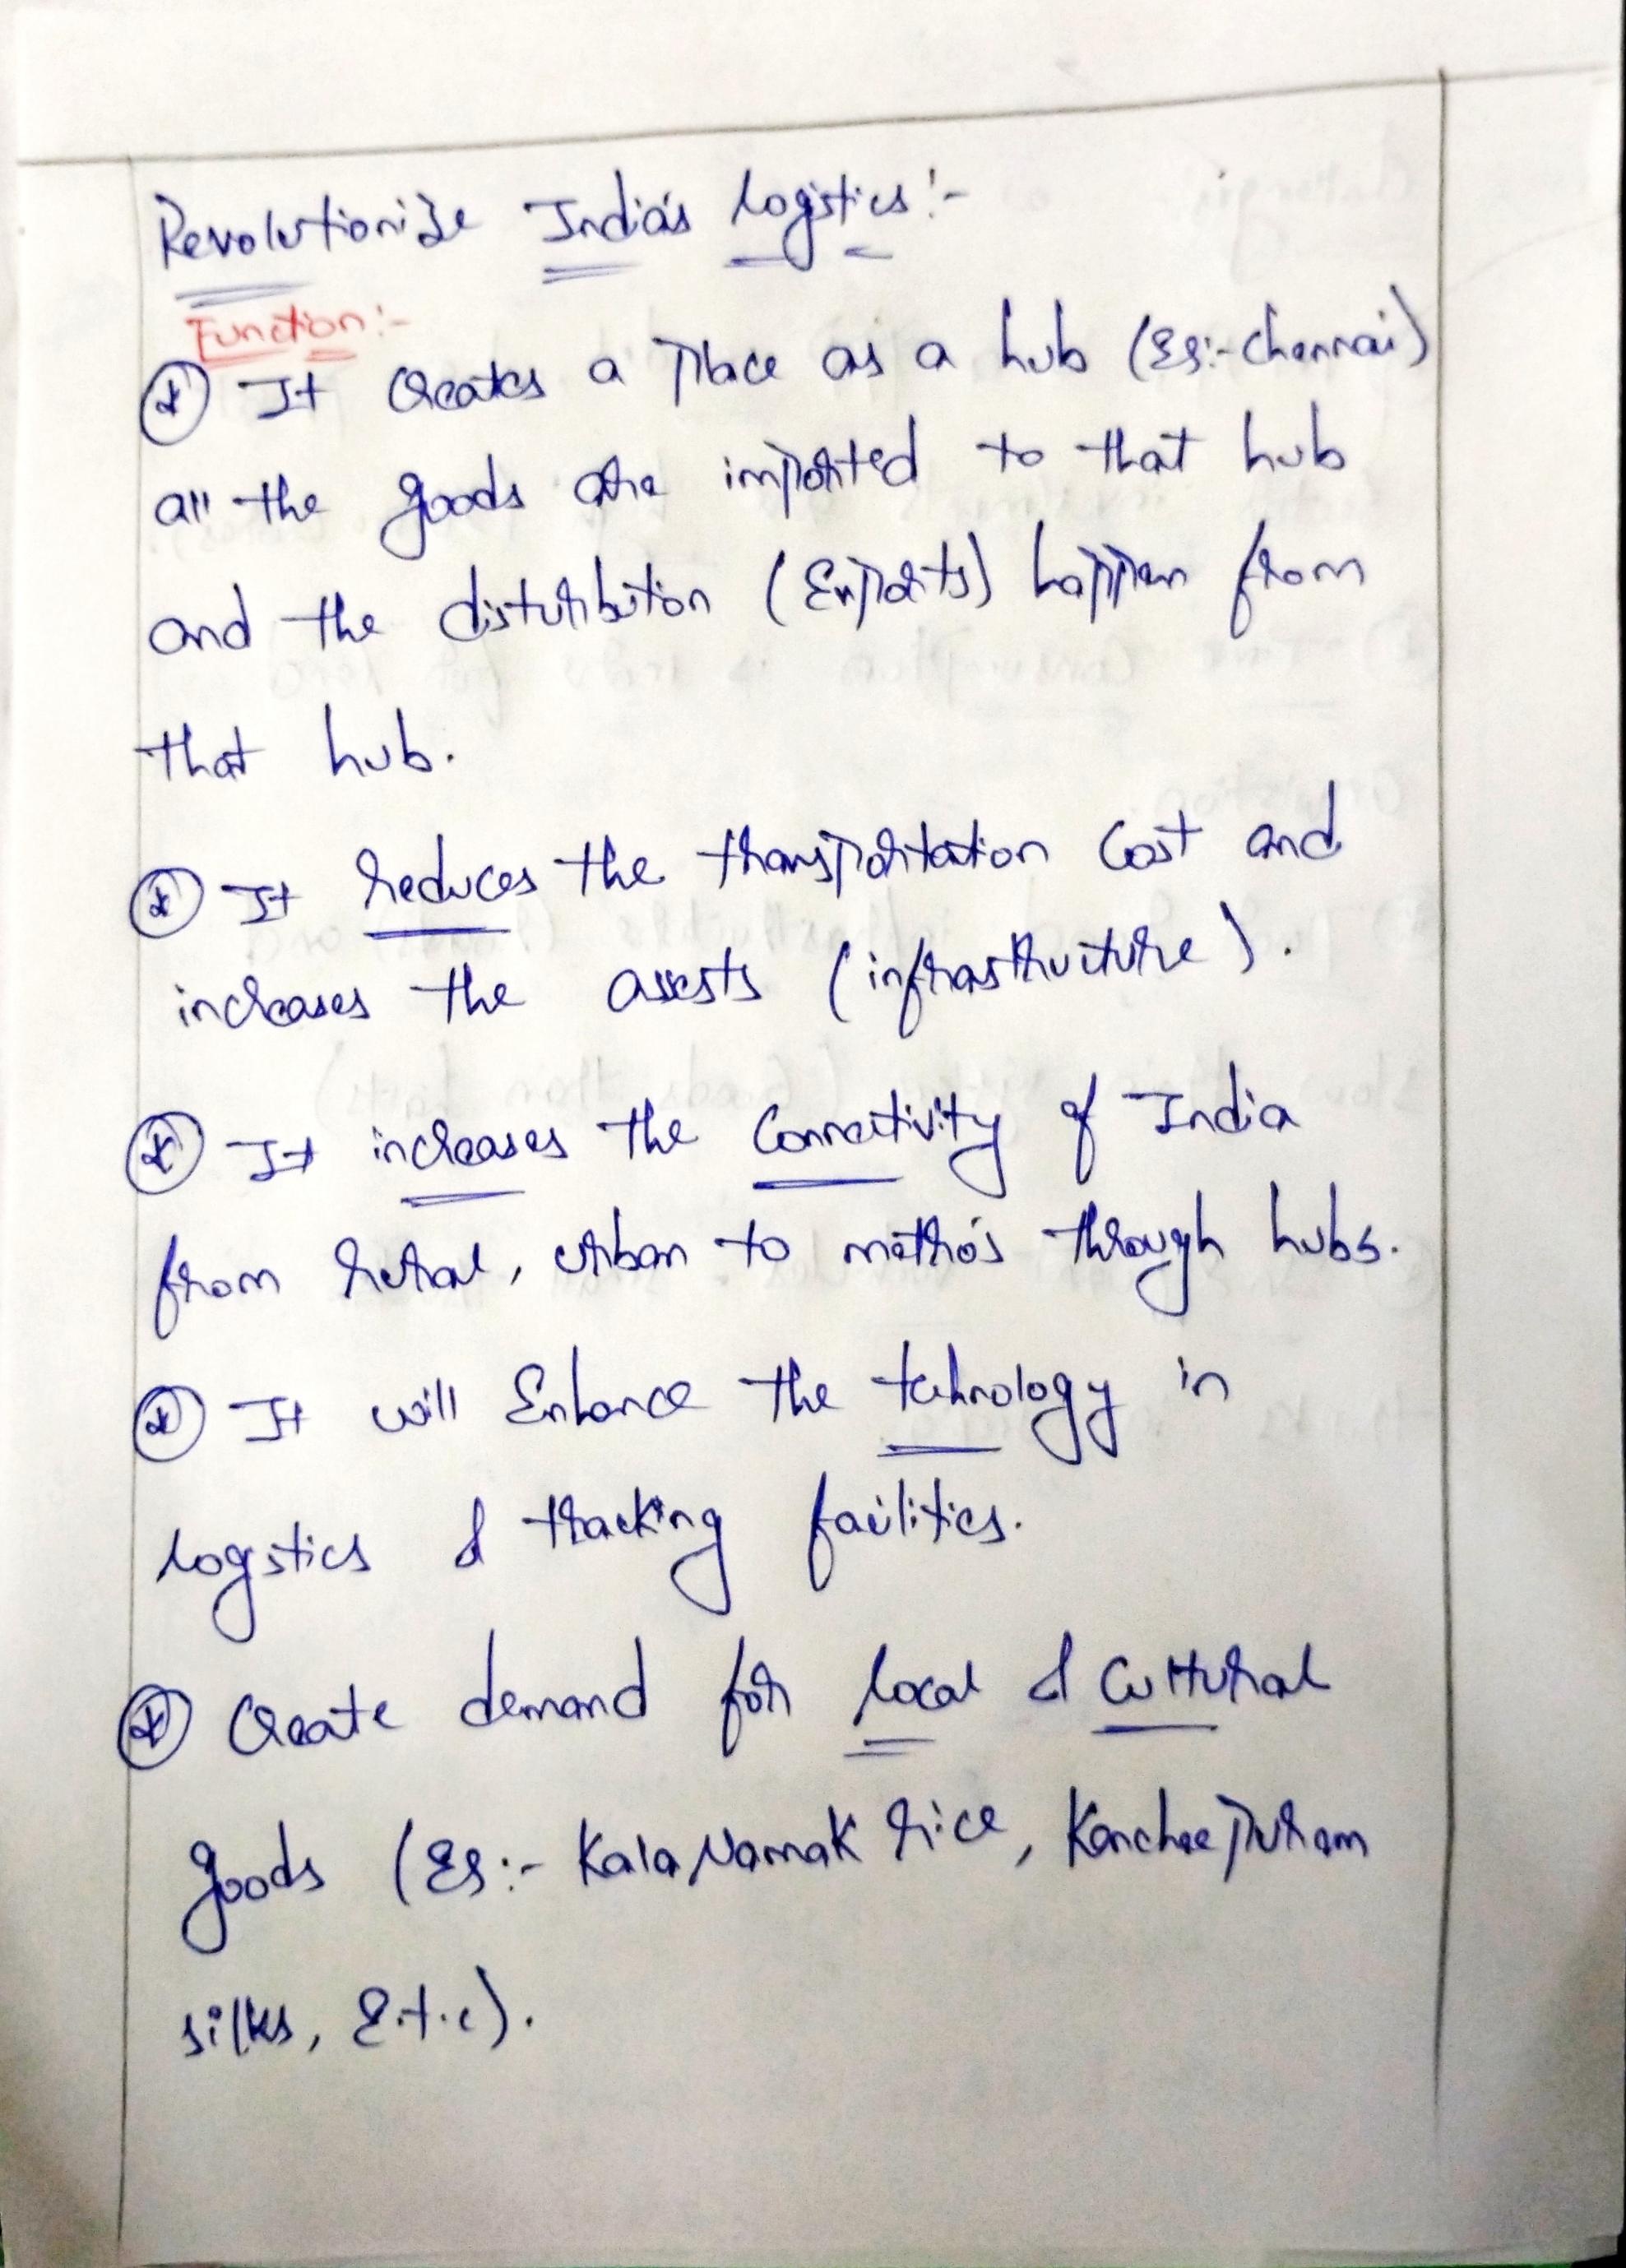 Revolutionize India's logistics:-
Function:-
It creates a place as a hub (Eg:- Chennai)
all the goods are imported to that hub
and the distutribution (Exports) happen from
that hub.
It reduces the transportation cost and
increases the assests (infrastructure).
It increases the connectivity of India
from rural, urban to metro's through hubs.
It will Enhance the technology in
logistics & tracking facilities.
Create demand for local & cultural
goods (Eg:- Kala Namak rice, Kancheepuram
silks, E.t.c).